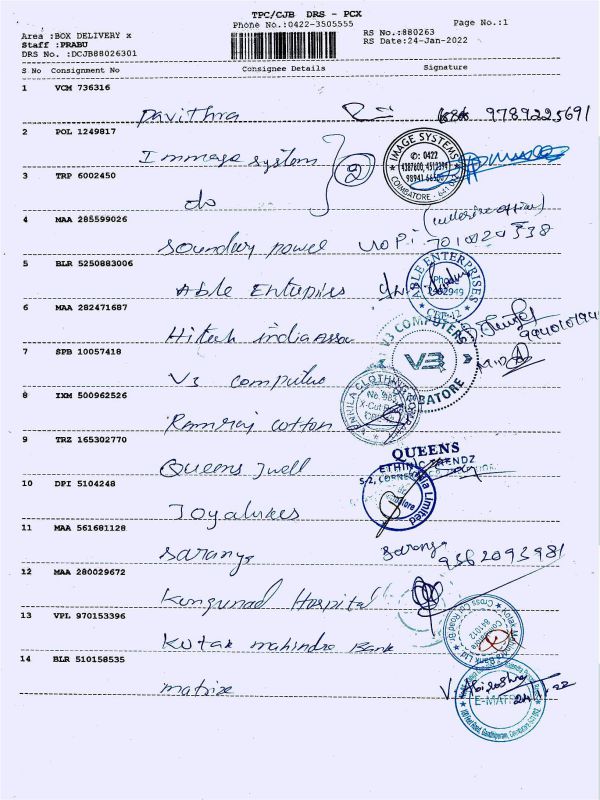 TPC/CJB DRS - PCX
Phone No.:0422-3505555
Page No.:1
Area :BOX DELIVERY x
Staff :PRABU
DRS No. :DCJB88026301
RS No.:880263
RS Date:24-Jan-2022
S No Consignment No Consignee Details Signature
1 VCM 736316
Pavithra 9789225691
2 POL 1249817
Immage system 2
IMAGE SYSTEMS
✆: 0422
COIMBATORE - 641
3 TRP 6002450
do
4 MAA 285599026
Soundary powel
5 BLR 5250883006
Able Enterprises
ABLE ENTERPRISES
Phone
CBE-12
6 MAA 282471687
Hitech india Asso
7 SPB 10057418
V3 computer
V3 COMPUTERS
V3
8 IXM 500962526
Ramraj cotton
9 TRZ 165302770
Queens Jwell
QUEENS
ETHNIC TRENDZ
10 DPI 5104248
Joyalukkes
India Limited
11 MAA 561681128
Saranya Saranya
9362093981
12 MAA 280029672
Kungunad Hospital
13 VPL 970153396
Kotak mahindra Bank
14 BLR 510158535
matrixe
E-MATRIX
24/1/22